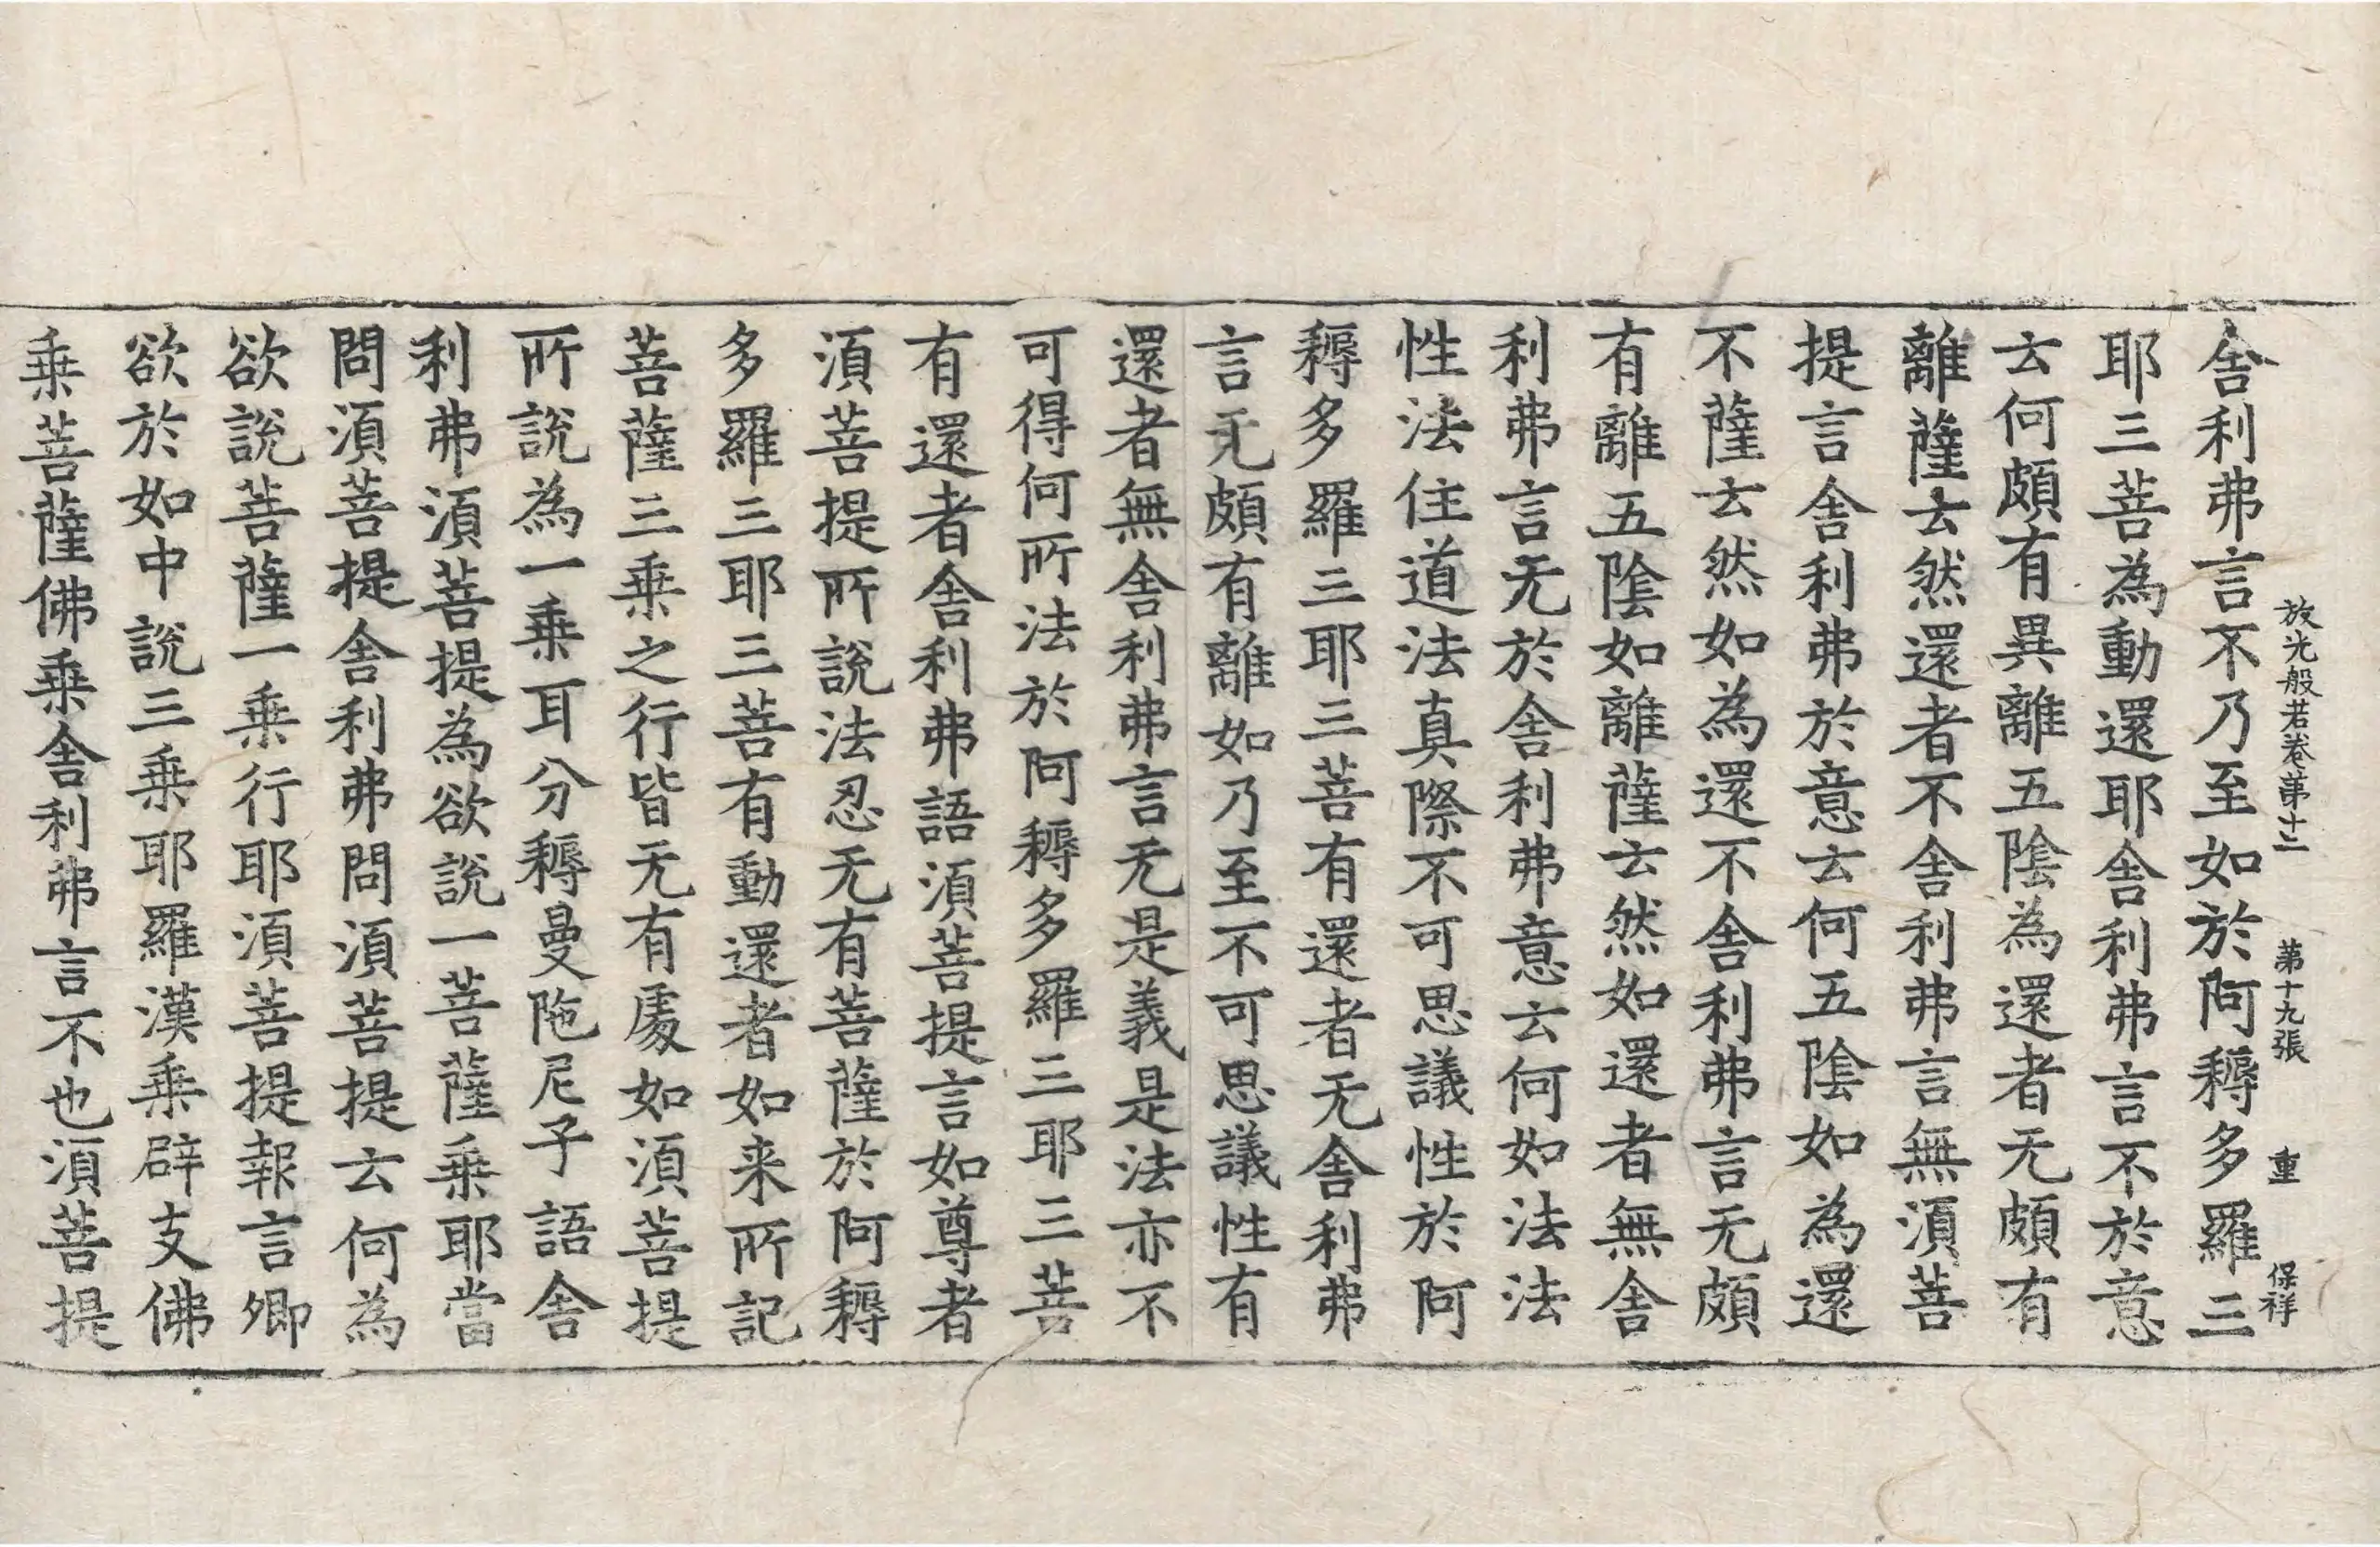 放光般若卷第十二 第十九張 重 保祥
舍利弗言不乃至如於阿耨多羅三
耶三菩為動還耶舍利弗言不於意
云何頗有異離五陰為還者无頗有
離薩云然還者不舍利弗言無須菩
提言舍利弗於意云何五陰如為還
不薩云然如為還不舍利弗言无頗
有離五陰如離薩云然如還者無舍
利弗言无於舍利弗意云何如法法
性法住道法真際不可思議性於阿
耨多羅三耶三菩有還者无舍利弗
言无頗有離如乃至不可思議性有
還者無舍利弗言无是義是法亦不
可得何所法於阿耨多羅三耶三菩
有還者舍利弗語須菩提言如尊者
須菩提所說法忍无有菩薩於阿耨
多羅三耶三菩有動還者如来所記
菩薩三乘之行皆无有處如須菩提
所說為一乘耳分耨曼陁尼子語舍
利弗須菩提為欲說一菩薩乘耶當
問須菩提舍利弗問須菩提云何為
欲說菩薩一乘行耶須菩提報言卿
欲於如中說三乘耶羅漢乘辟支佛
乘菩薩佛乘舍利弗言不也須菩提